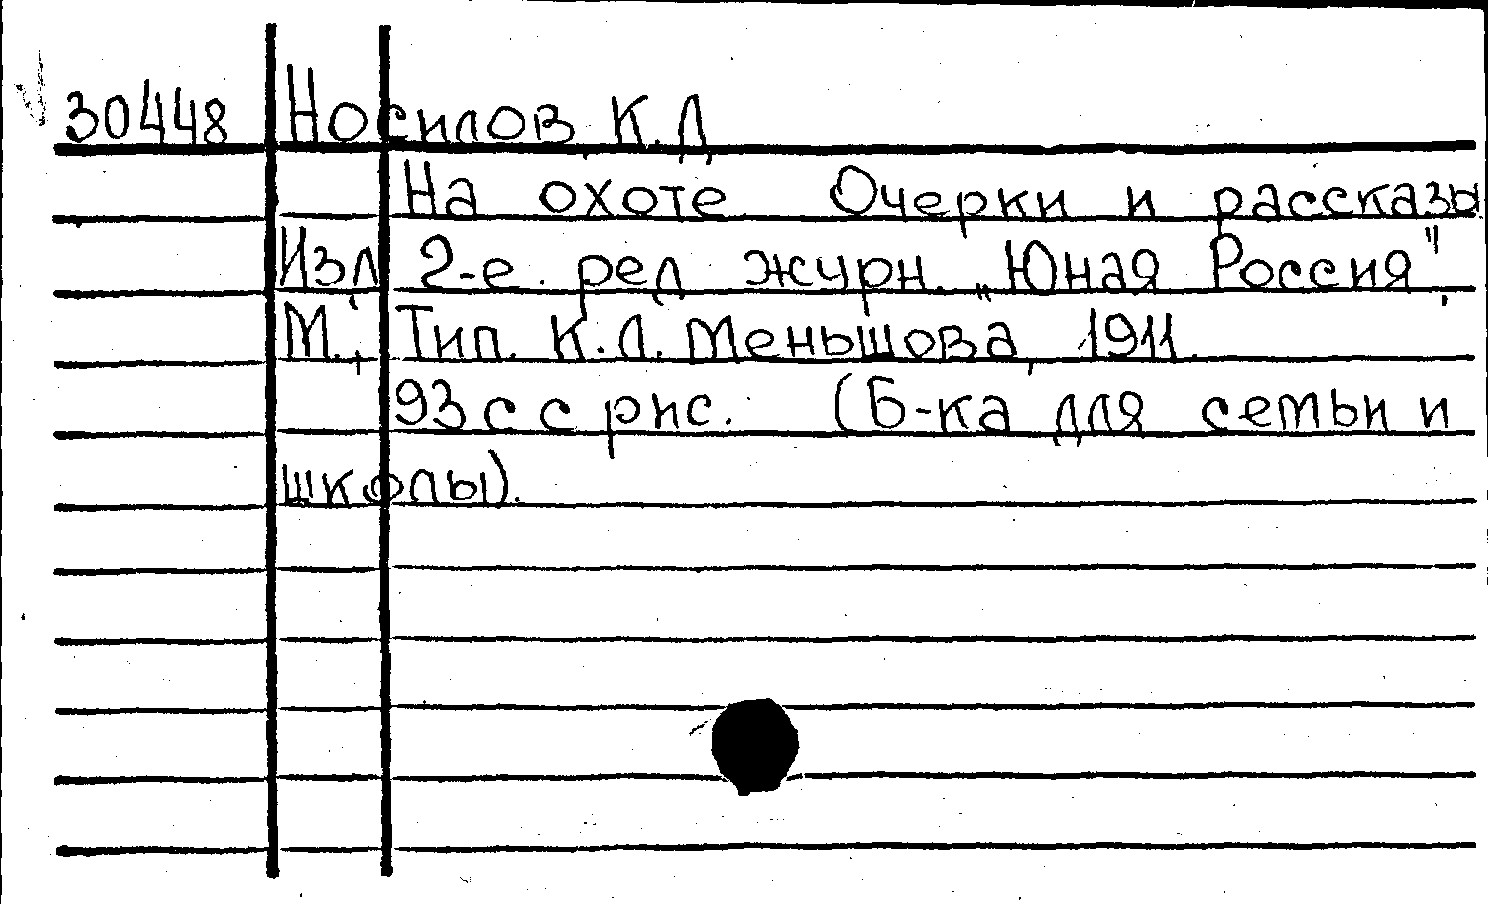 30448 Носилов К.Д
На охоте Очерки и рассказы
Изд 2-е. ред журн. „Юная Россия"
М., Тип. К.Л. Меньшова, 1911.
93 с с рис. (Б-ка для семьи и
школы).